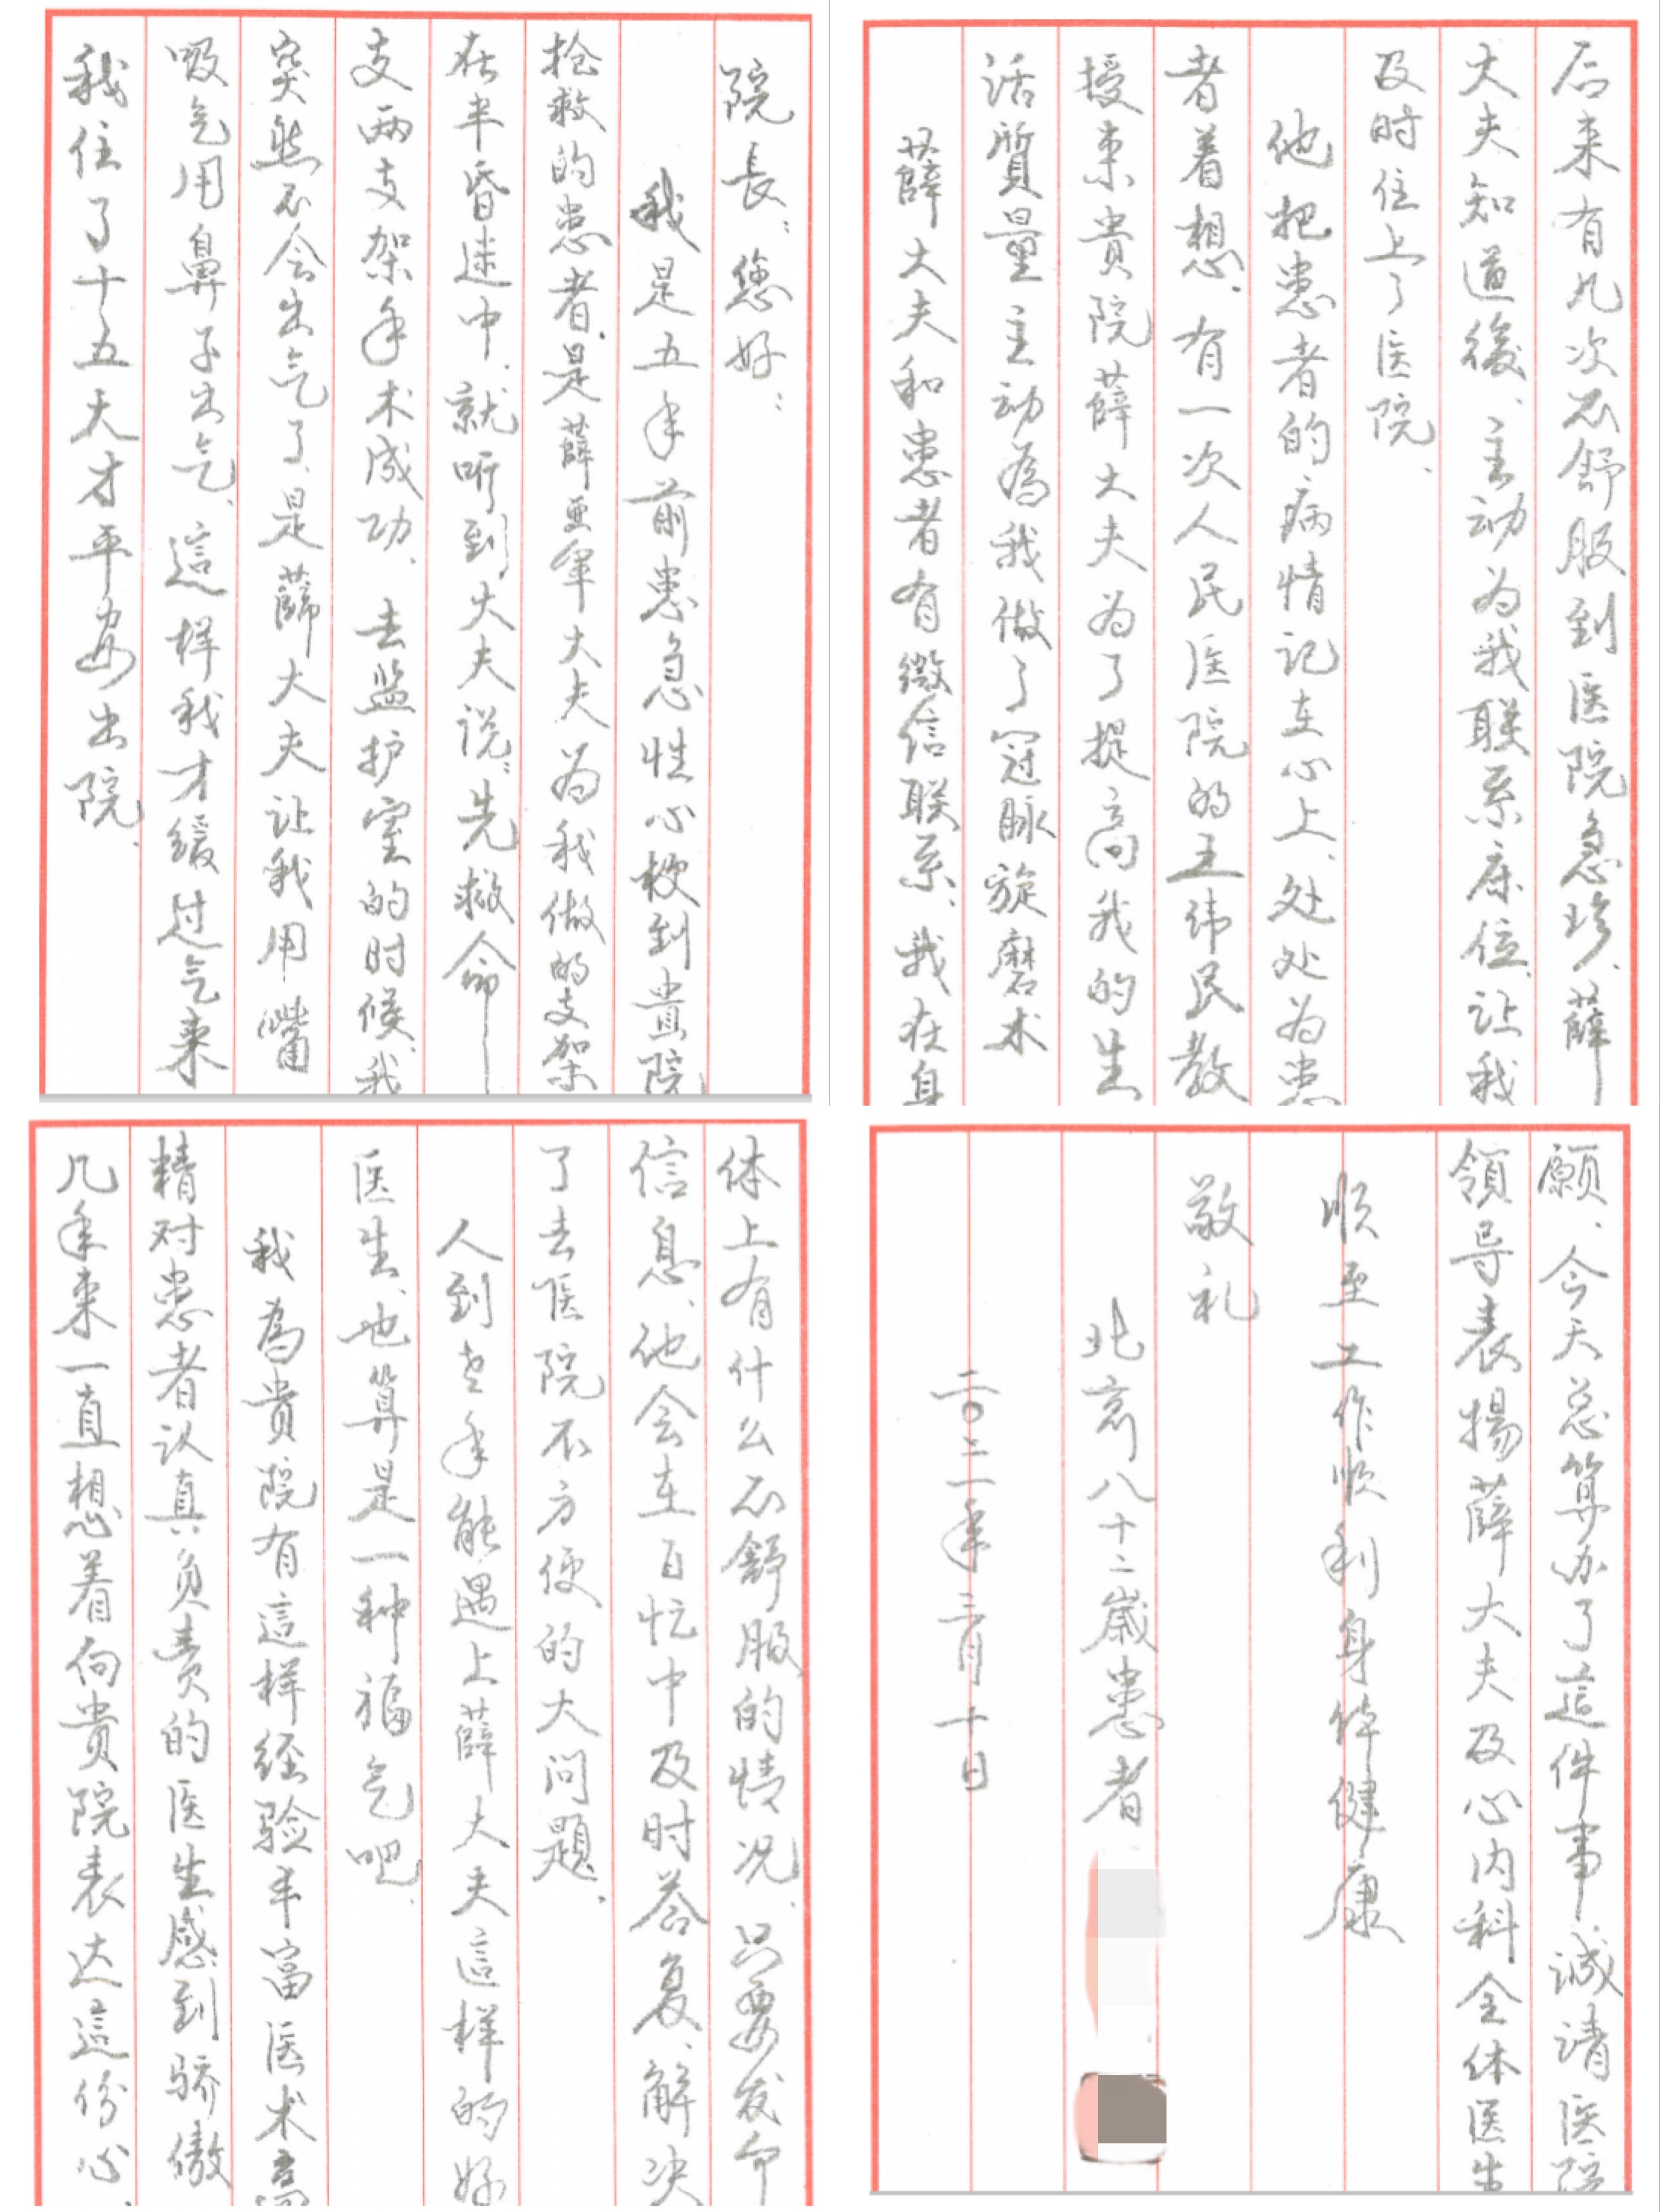 院長：您好：
我是五年前患急性心梗到貴院
抢救的患者．是薛亜军大夫为我做的支架
在半昏迷中．就听到大夫说：先救命
支两支架手术成功．去监护室的时候．我
突然不会出气了．是薛大夫让我用嘴
吸气用鼻子出气．這样我才缓过气来
我住了十五天才平安出院．
后来有几次不舒服到医院急珍．薛
大夫知道後、主动为我联系床位．让我
及时住上了医院．
他把患者的病情记在心上．处处为患
者着想．有一次人民医院的王伟民教
授来貴院薛大夫为了提高我的生
活質量主动為我做了冠脉旋磨术
薛大夫和患者有微信联系．我在身
体上有什么不舒服的情况．只要发个
信息．他会在百忙中及时答复．解决
了去医院不方便的大问题．
人到老年能遇上薛大夫這样的好
医生．也算是一种福气吧．
我為貴院有這样经验丰富医术高
精对患者认真负责的医生感到骄傲
几年来一直想着向貴院表达這份心．
願．今天总算办了這件事诚请医院
領导表揚薛大夫及心内科全体医生
顺至工作顺利身体健康
敬礼
北京八十二歲患者
二〇二一年三月十日